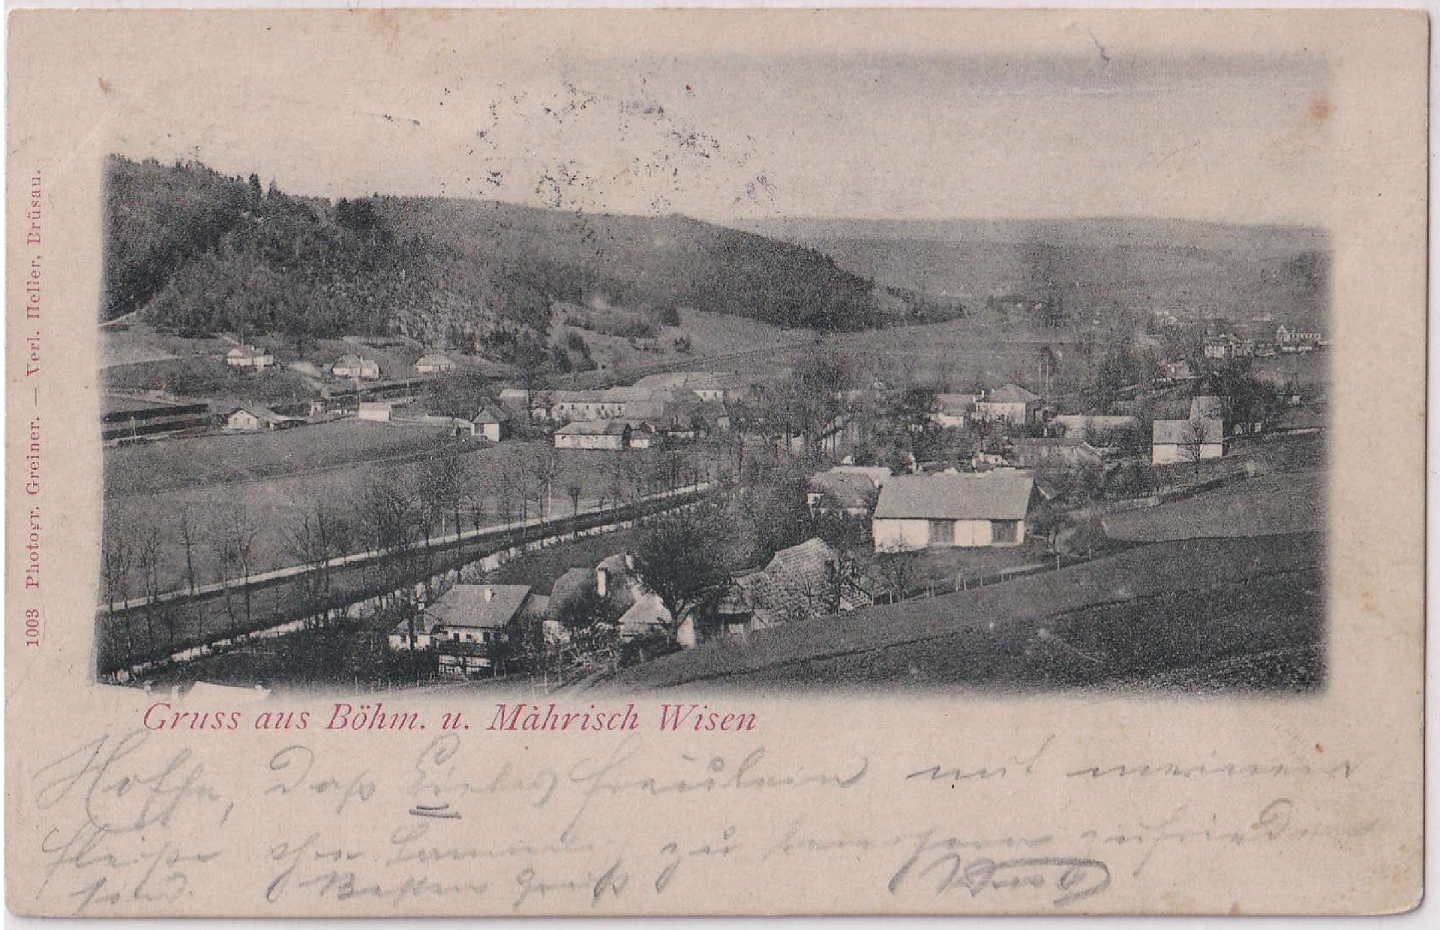 1003 Photogr. Greiner. — Verl. Heller, Brüsau.
Gruss aus Böhm. u. Màhrisch Wisen
Hoffe, daß Liebes Fräulein mit meinem
fleiße zu zufrieden
sind. Besten Gruß